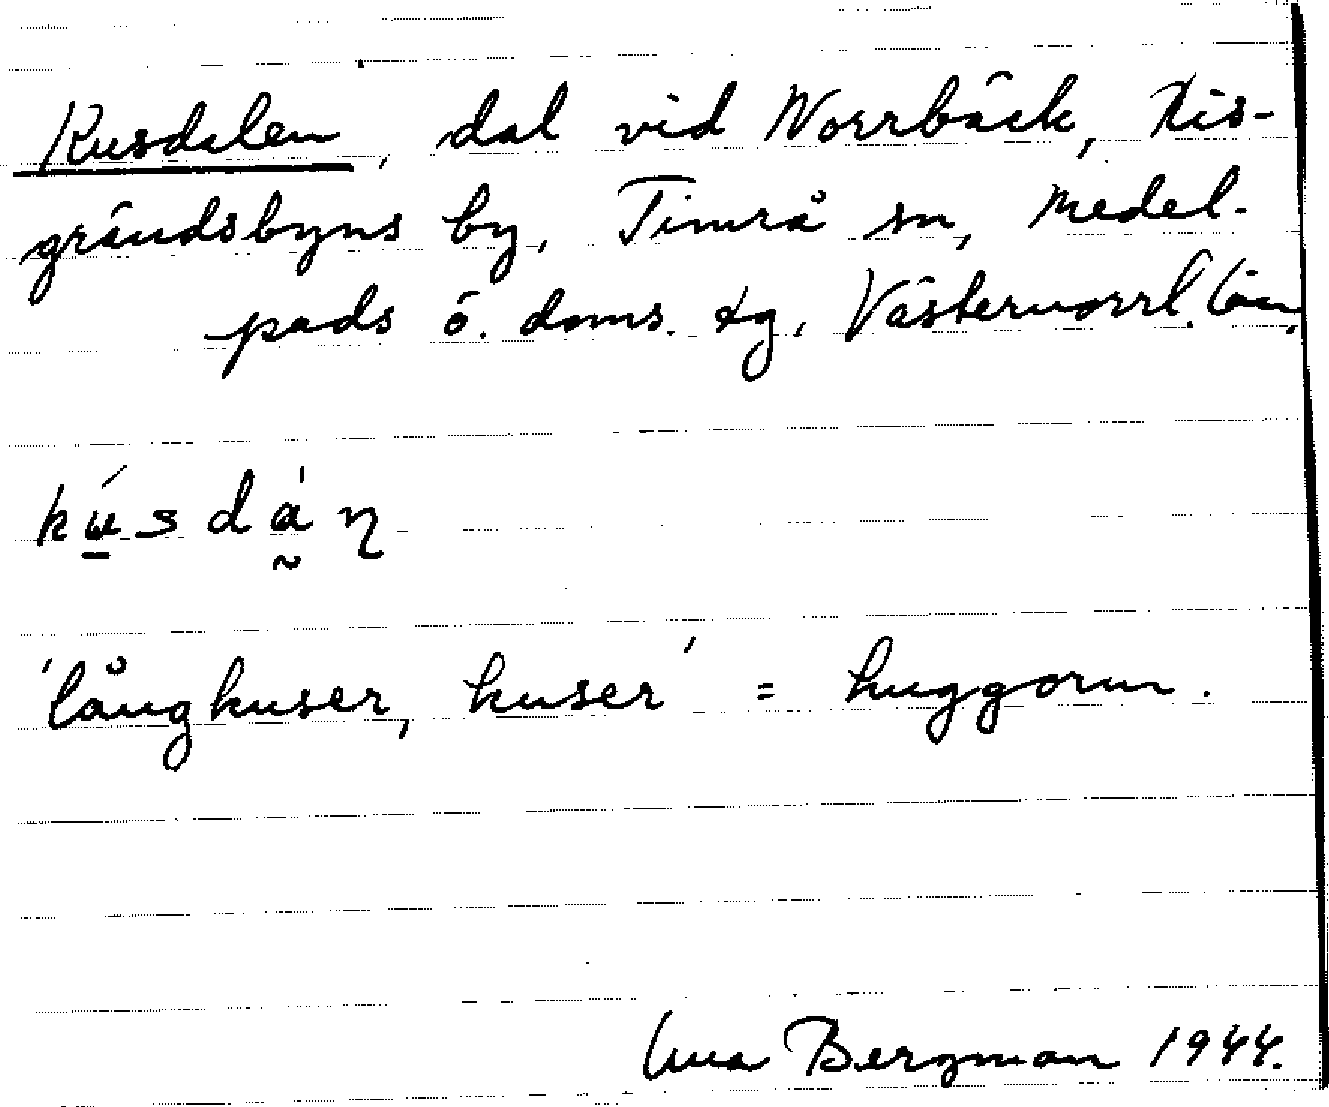 Kusdalen, dal vid Norrbäck, Lis-
grändsbyns by, Timrå sn, Medel-
pads ö. doms. tg, Västernorrl. län,
kusdán
'långkuser, kuser' = huggorm.
Bergman 1944.